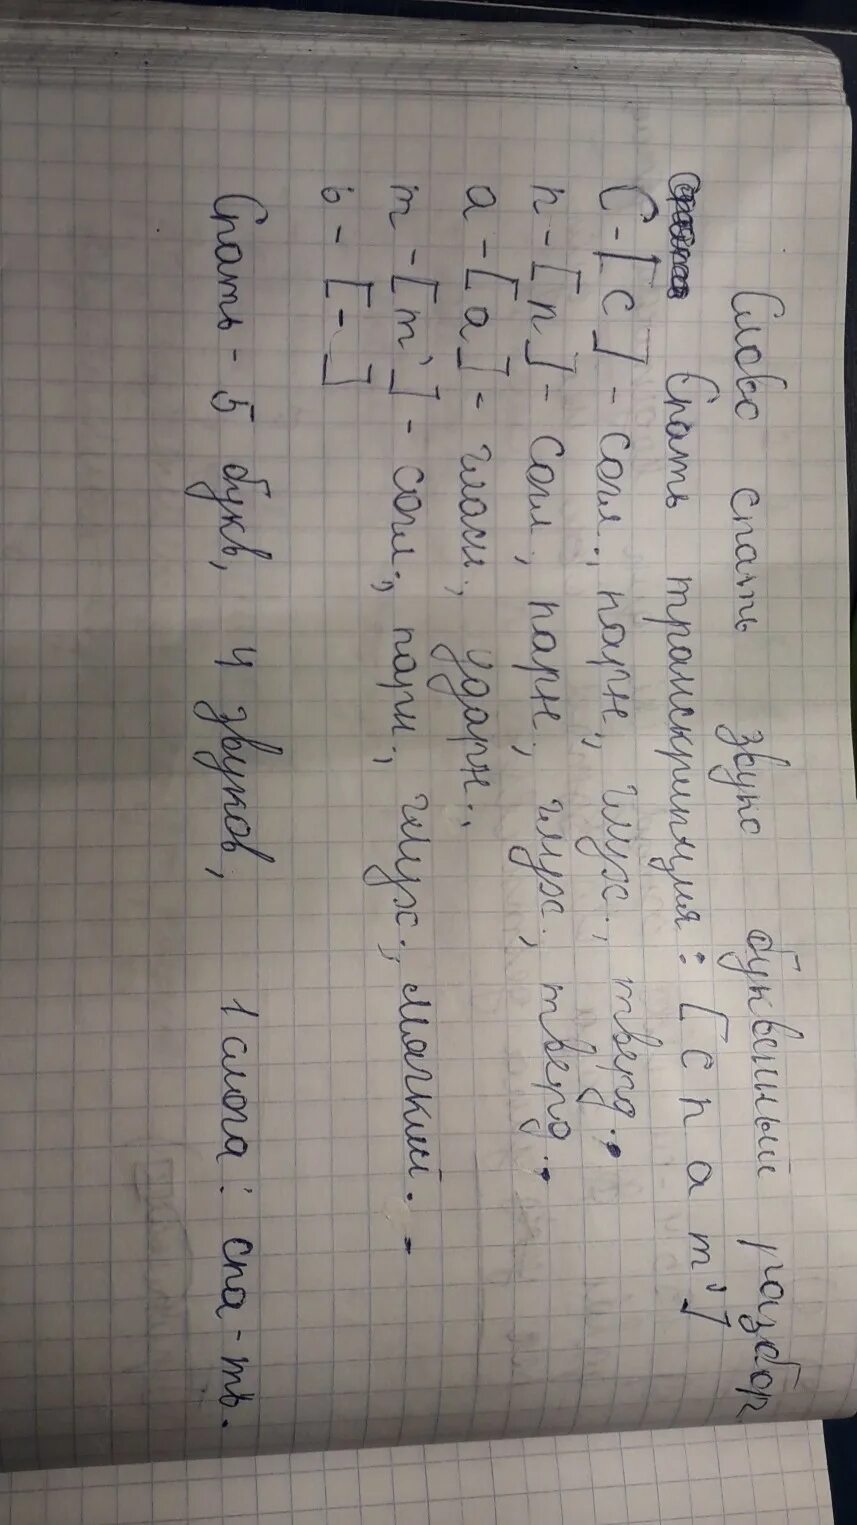 Слово спать звуко буквенный разбор
Спать транскрипция: [с п а т']
С - [с] - согл., парн., глух., тверд.,
п - [п] - согл., парн., глух., тверд.,
а - [а] - гласн., ударн.,
т - [т'] - согл., парн., глух., мягкий. -
ь - [-]
Спать - 5 букв, 4 звуков, 1 слога: спа-ть.